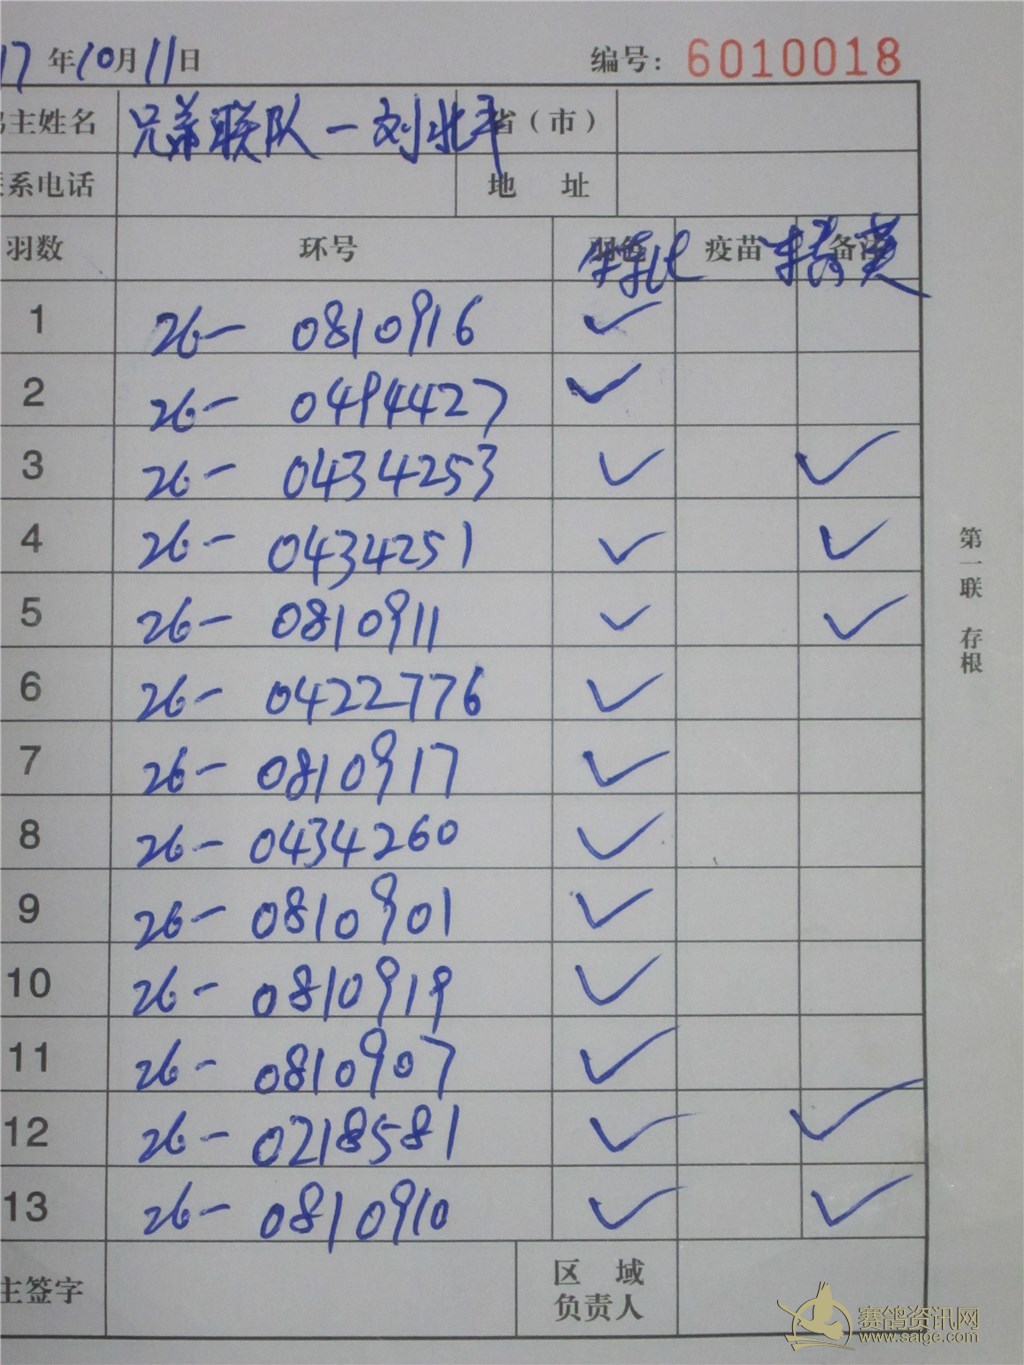 17年10月11日 编号：6010018
主姓名 兄弟联队一刘北平 省（市）
系电话 地 址
羽数 环号 羽色 疫苗 备注
1 26- 0810916 ✓
2 26- 0494427 ✓
3 26- 0434253 ✓ ✓
4 26- 0434251 ✓ ✓
5 26- 0810911 ✓ ✓
6 26- 0422776 ✓
7 26- 0810917 ✓
8 26- 0434260 ✓
9 26- 0810901 ✓
10 26- 0810919 ✓
11 26- 0810907 ✓
12 26- 0218581 ✓ ✓
13 26- 0810910 ✓ ✓
主签字 区 域
负责人
第一联 存根
赛鸽资讯网
www.saige.com